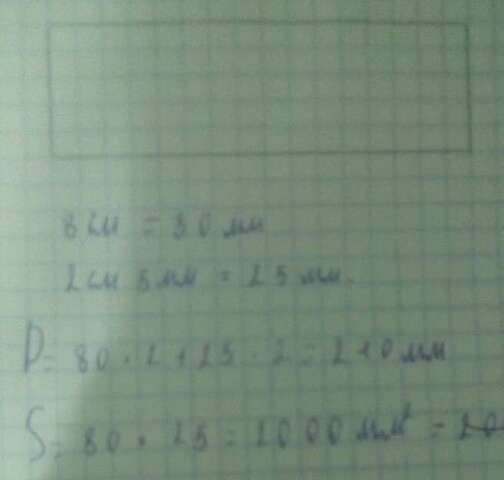 8 см = 80 мм
2 см 5 мм = 25 мм.
P = 80 · 2 + 25 · 2 = 210 мм
S = 80 · 25 = 2000 мм² = 20